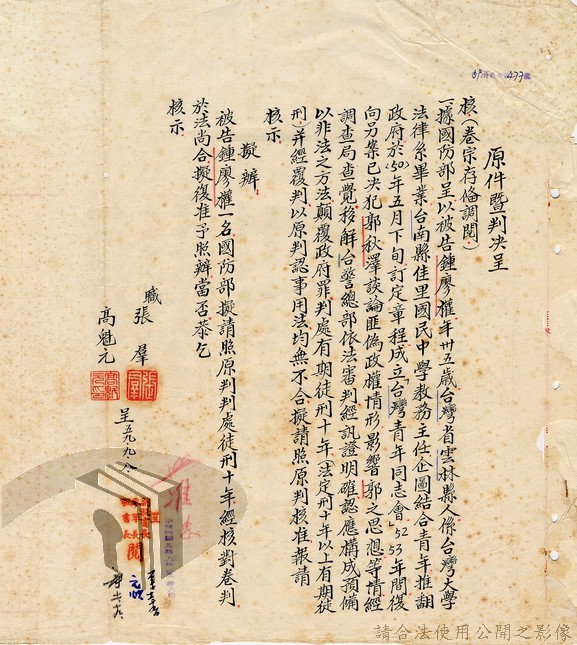 原件暨判決呈
核(卷宗存備調閱)
一據國防部呈以被告鍾廖權年卅五歲台灣省雲林縣人係台灣大學
法律系畢業台南縣佳里國民中學教務主任企圖結合青年推翻
政府於50年五月下旬訂定章程成立「台灣青年同志會」52 53年間復
向另案已決犯郭秋澤談論匪偽政權情形影響郭之思想等情經
調查局查覺移解台警總部依法審判經訊證明確認應構成預備
以非法之方法顛覆政府罪判處有期徒刑十年(法定刑十年以上有期徒
刑)并經覆判以原判認事用法均無不合擬請照原判核准報請
核示
擬辦
被告鍾廖權一名國防部擬請照原判判處徒刑十年經核對卷判
於法尚合擬復准予照辦當否恭乞
核示
職 張羣
高魁元
呈五九、九、八、
請合法使用公開之影像